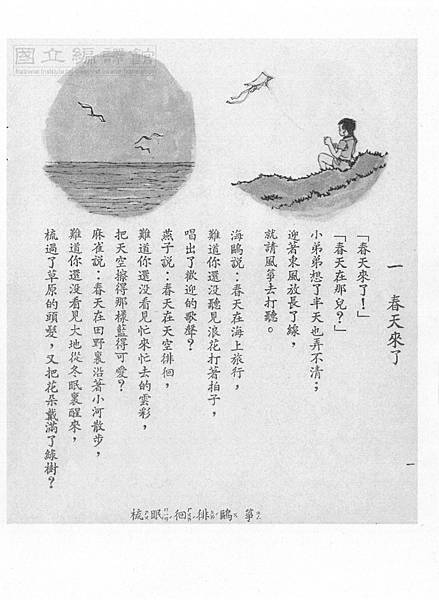 國立編譯館
一　春天來了
「春天來了！」
「春天在那兒？」
小弟弟想了半天也弄不清；
迎著東風放長了線，
就請風箏去打聽。
海鷗說：春天在海上旅行，
難道你還沒聽見浪花打著拍子，
唱出了歡迎的歌聲？
燕子說：春天在天空徘徊，
難道你還沒看見忙來忙去的雲彩，
把天空擦得那樣藍得可愛？
麻雀說：春天在田野裏沿著小河散步，
難道你還沒看見大地從冬眠裏醒來，
梳過了草原的頭髮，又把花朵戴滿了綠樹？
一
箏 鷗 徘 徊 眠 梳